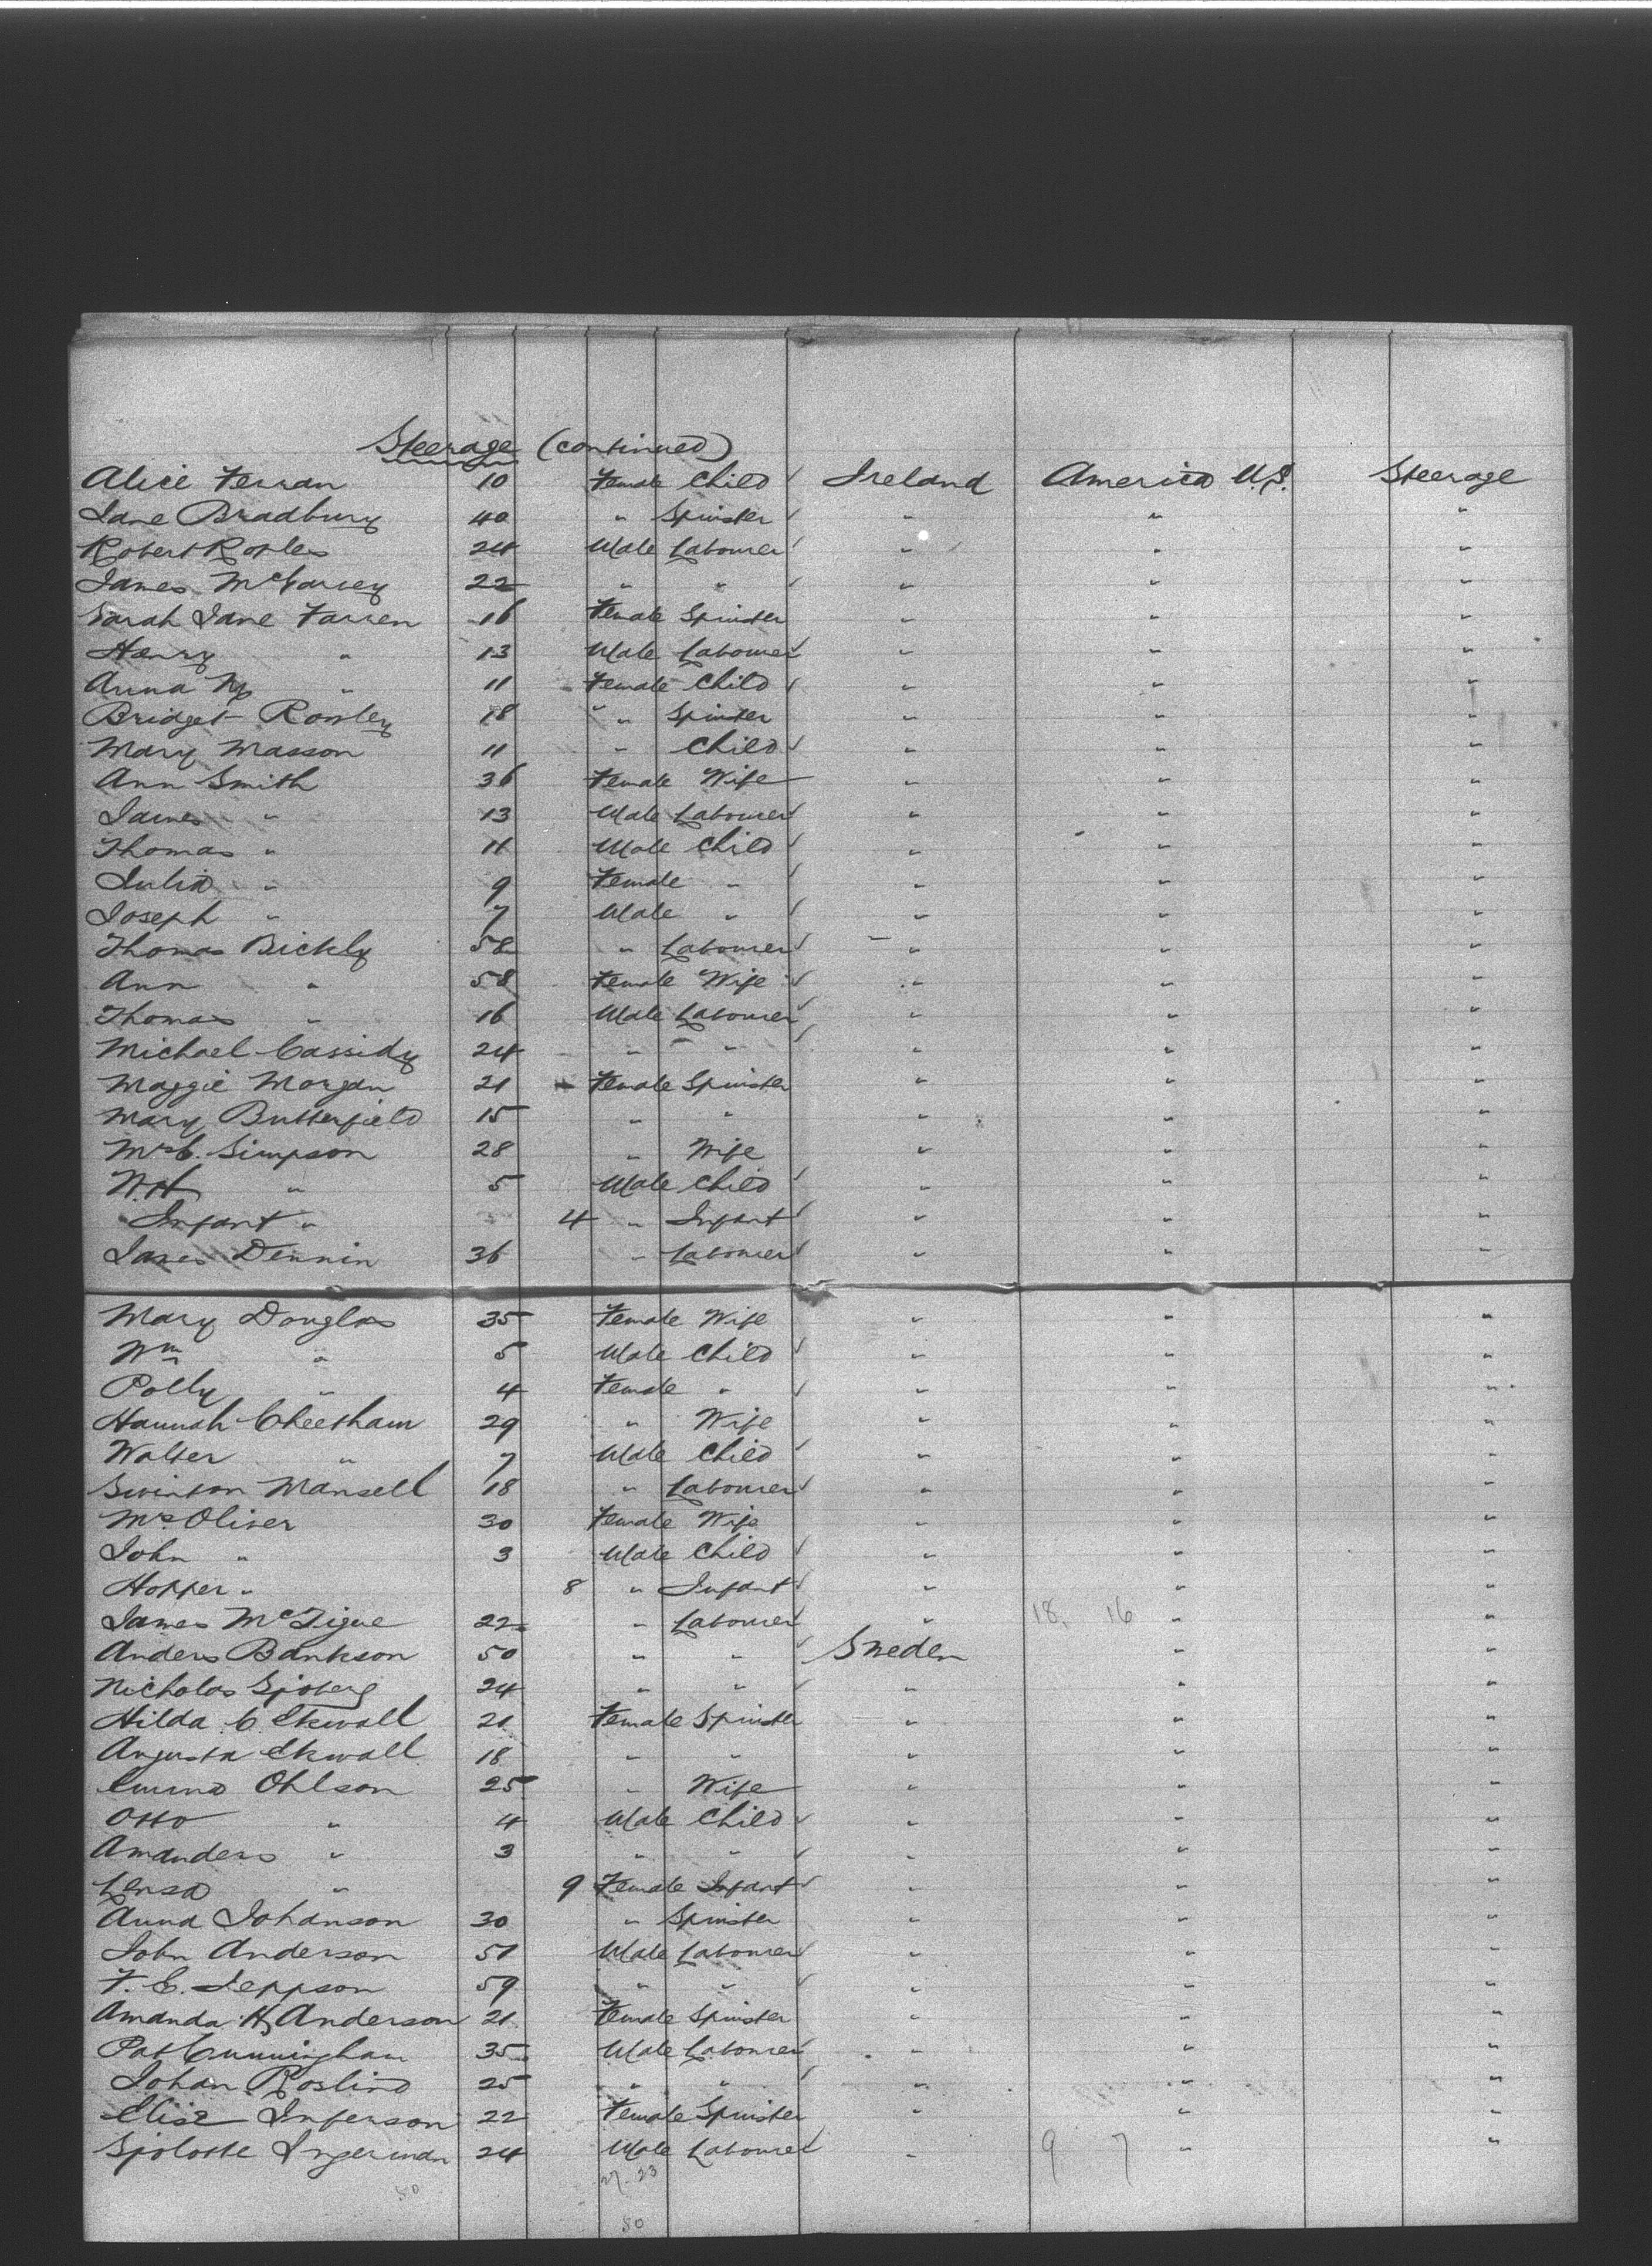 Steerage (continued)
Alice Ferran 10 Female Child Ireland America U.S. Steerage
Jane Bradbury 40 " Spinster " " "
Robert 24 Male Labourer " " "
James 22 " " " " "
Sarah Jane Farren 16 Female Spinster " " "
Henry " 13 Male Labourer " " "
Anna M " 11 Female Child " " "
Bridget 18 " Spinster " " "
Mary Masson 11 " Child " " "
Ann Smith 36 Female Wife " " "
James " 13 Male Labourer " " "
Thomas " 11 Male Child " " "
Julia " 9 Female " " " "
Joseph " 7 Male " " " "
Thomas Bickly 58 " Labourer " " "
Ann " 58 Female Wife " " "
Thomas " 16 Male Labourer " " "
Michael Cassidy 24 " " " " "
Maggie Morgan 21 Female Spinster " " "
Mary Butterfield 15 " " " " "
Mrs C. Simpson 28 " Wife " " "
W.H " 5 Male Child " " "
Infant " 4 " Infant " " "
James Dennin 36 " Labourer " " "
Mary Douglas 35 Female Wife " " "
Wm " 5 Male Child " " "
Polly " 4 Female " " " "
Hannah Cheetham 29 " Wife " " "
Walter " 7 Male Child " " "
Swinton Mansell 18 " Labourer " " "
Mrs Oliver 30 Female Wife " " "
John " 3 Male Child " " "
Hopper " 8 " Infant " " "
James McTigue 22 " Labourer " 18, 16 " "
Anders Bankson 50 " " Sweden " "
Nicholas Sjoberg 24 " " " " "
Hilda C. Ekwall 21 Female Spinster " " "
Augusta Ekwall 18 " " " " "
Emma Ohlson 25 " Wife " " "
Otto " 4 Male Child " " "
Amanders " 3 " " " " "
Lensa " 9 Female Infant " " "
Anna Johanson 30 " Spinster " " "
John Anderson 51 Male Labourer " " "
F. E. Jeppson 59 " " " " "
Amanda H Anderson 21 Female Spinster " " "
Pat Cunningham 35 Male Labourer " " "
Johan Roslind 25 " " " " "
Elise 22 Female Spinster " " "
Ingerman 24 Male Labourer " 9 7 " "
50 27-23
50